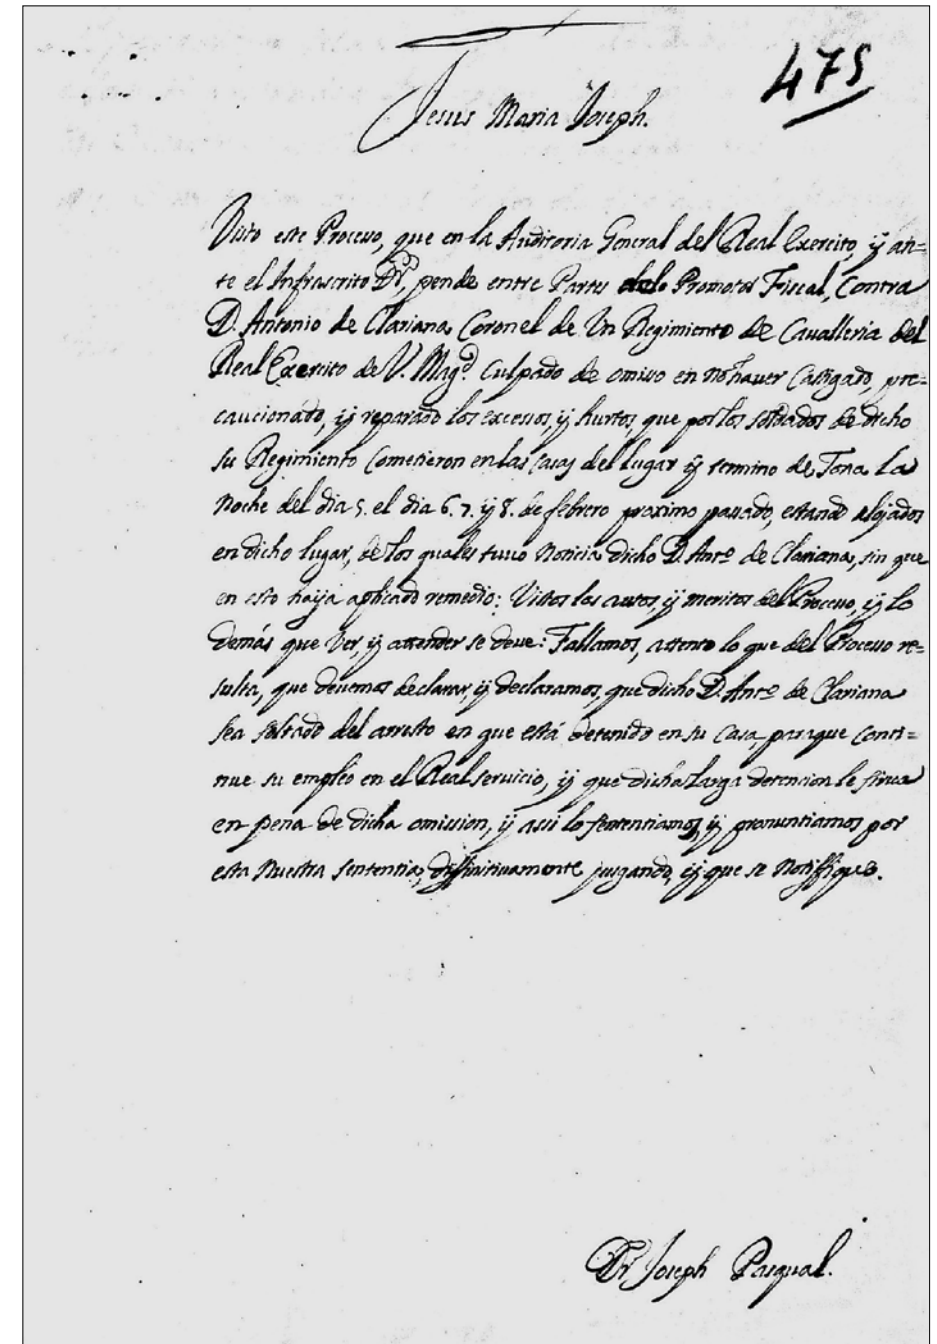 475
Jesus Maria Joseph.
Visto este Processo, que en la Auditoria General del Real Exercito, ÿ an=
te el Infrascrito Dr, pende entre Partes del Promotor Fiscal, Contra
D. Antonio de Clariana Coronel de Un Regimiento de Cavalleria del
Real Exercito de V. Magd. Culpado de omisso en no haver Castigado, pre=
caucionado, ÿ reparado los excessos, ÿ hurtos, que por los soldados de dicho
su Regimiento Cometieron en las casas del lugar ÿ termino de Tona La
Noche del dia 5. el dia 6. 7. ÿ 8. de febrero proximo passado, estando alojados
en dicho lugar, de los quales tuvo Noticia dicho D. Anto de Clariana, sin que
en esto haÿa aplicado remedio: Vistos los autos, ÿ meritos del Processo, ÿ lo
demás que Ver, ÿ attender se deve: Fallamos, attento lo que del Processo re=
sulta, que devemos declarar, ÿ declaramos, que dicho D. Anto de Clariana
sea soltado del arresto en que está detenido en su Casa, paraque Conti=
nue su empleo en el Real servicio, ÿ que dicha larga detencion le sirva
en pena de dicha omission, ÿ assi lo sententiamos, ÿ pronuntiamos por
esta Nuestra sententia, diffinitivamente jusgando, ÿ que se Notiffique.
Dr Joseph Pasqual.